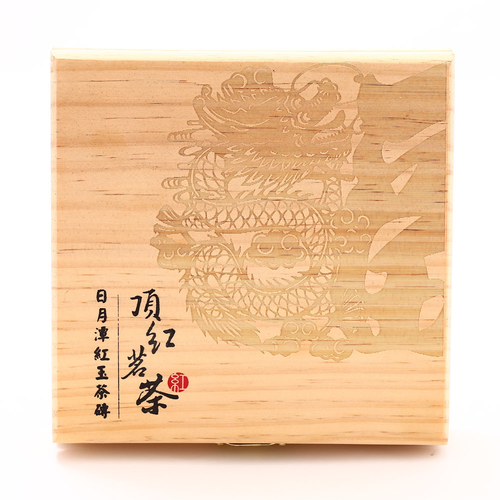 頂紅茗茶
紅
日月潭紅玉茶磚